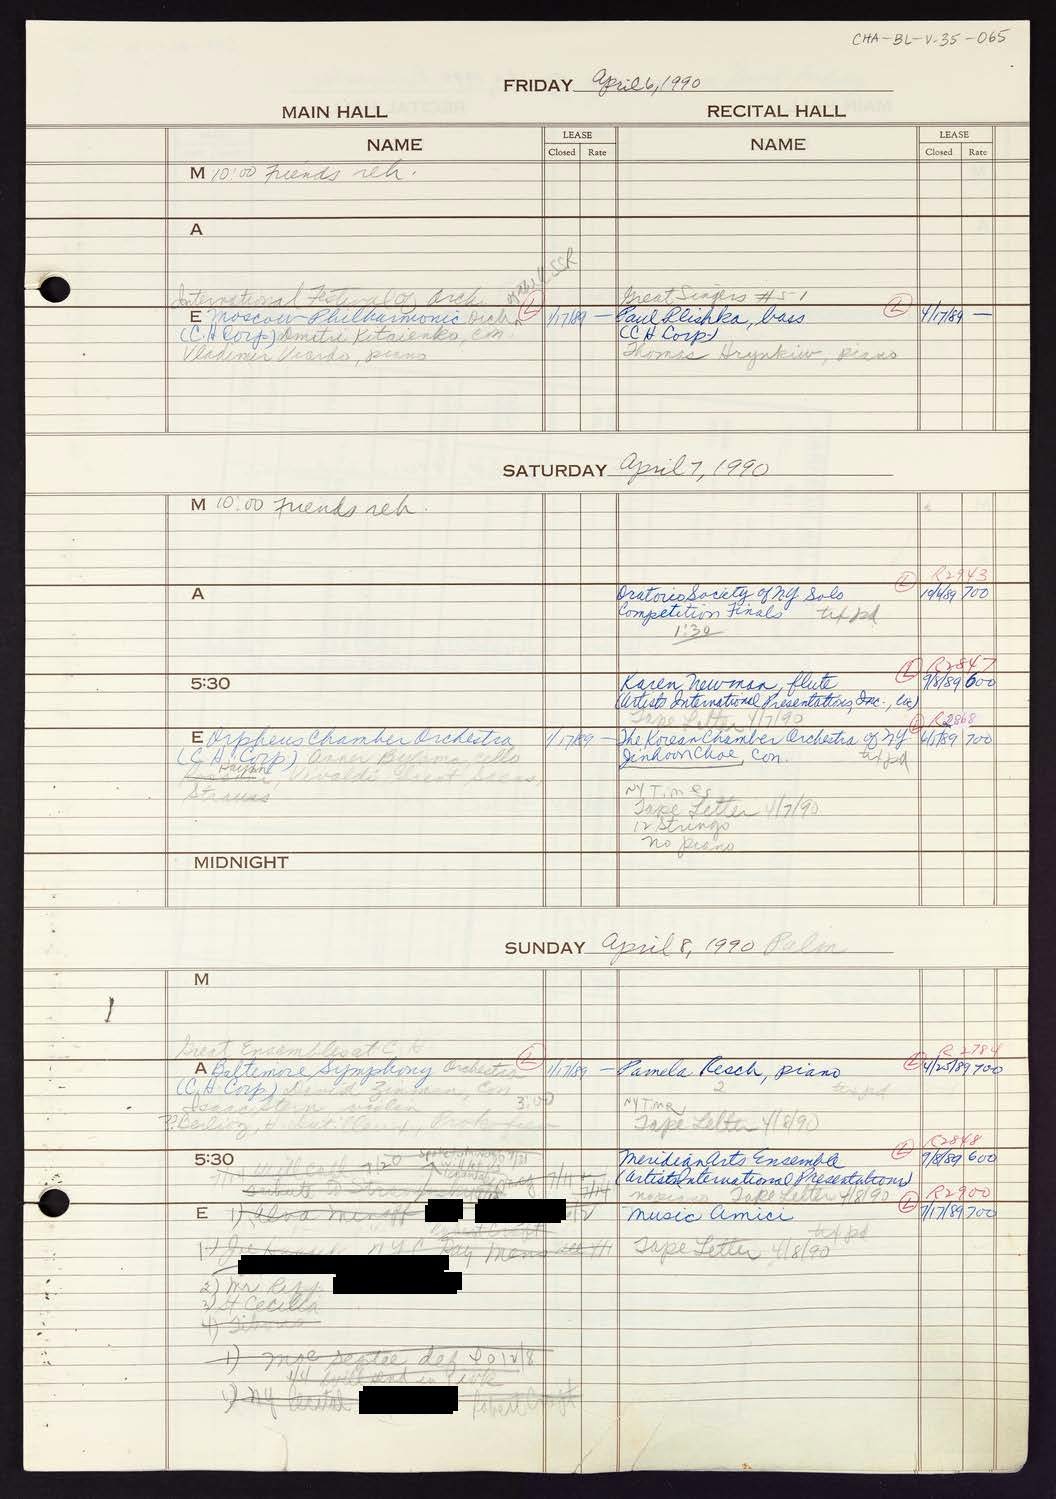 CHA-BL-V-35-065
FRIDAY April 6, 1990
MAIN HALL
RECITAL HALL
NAME
LEASE
Closed Rate
NAME
LEASE
Closed Rate
M 10:00 Friends reh.
A
International Festival of Orch. of the USSR
E Moscow Philharmonic Orch. L 1/17/89 —
(C.H. Corp) Dmitri Kitaienko, con.
Vladimir Viardo, piano
Great Singers # 51
Paul Plishka, bass L 4/17/89 —
(CH Corp)
Thomas Hrynkiw, piano
SATURDAY April 7, 1990
M 10:00 Friends reh.
A
L R2943
Oratorio Society of NY Solo 10/6/89 700
Competition Finals txt pd
1:30
5:30
L R2847
Karen Newman, flute 9/8/89 600
(Artists International Presentations, Inc.,
Tape Letter 4/7/90
E Orpheus Chamber Orchestra 1/17/89 —
(C.H. Corp) Anner Bylsma cello
Haydn, Vivaldi
Strauss
L R2868
The Korean Chamber Orchestra of NY 700
Jinhoon Choe, con. txt pd
NY Times
Tape Letter 4/7/90
12 Strings
No piano
MIDNIGHT
SUNDAY April 8, 1990 Palm
M
Great Ensembles at C H
A Baltimore Symphony Orchestra L 1/17/89 —
(C.H. Corp) David Zinman, Con
Isaac Stern, violin 3:00
?? Berlioz, Prokofiev
L R2784
Pamela Resch, piano 4/25/89 700
2 txt pd
NY Times
Tape Letter 4/8/90
5:30
Will call 7/20
L R2848
Meridian Arts Ensemble 9/8/89 600
(Artists International Presentations)
no piano Tape Letter 4/8/90
E 1)
L R2900
Music Amici 7/17/89 700
txt pd
Tape Letter 4/8/90
1) Joe NYC Gay Mens
2) Mr
3) St Cecilia
4)
1)
1) NY Robert Craft